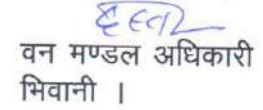 वन मण्डल अधिकारी
भिवानी ।